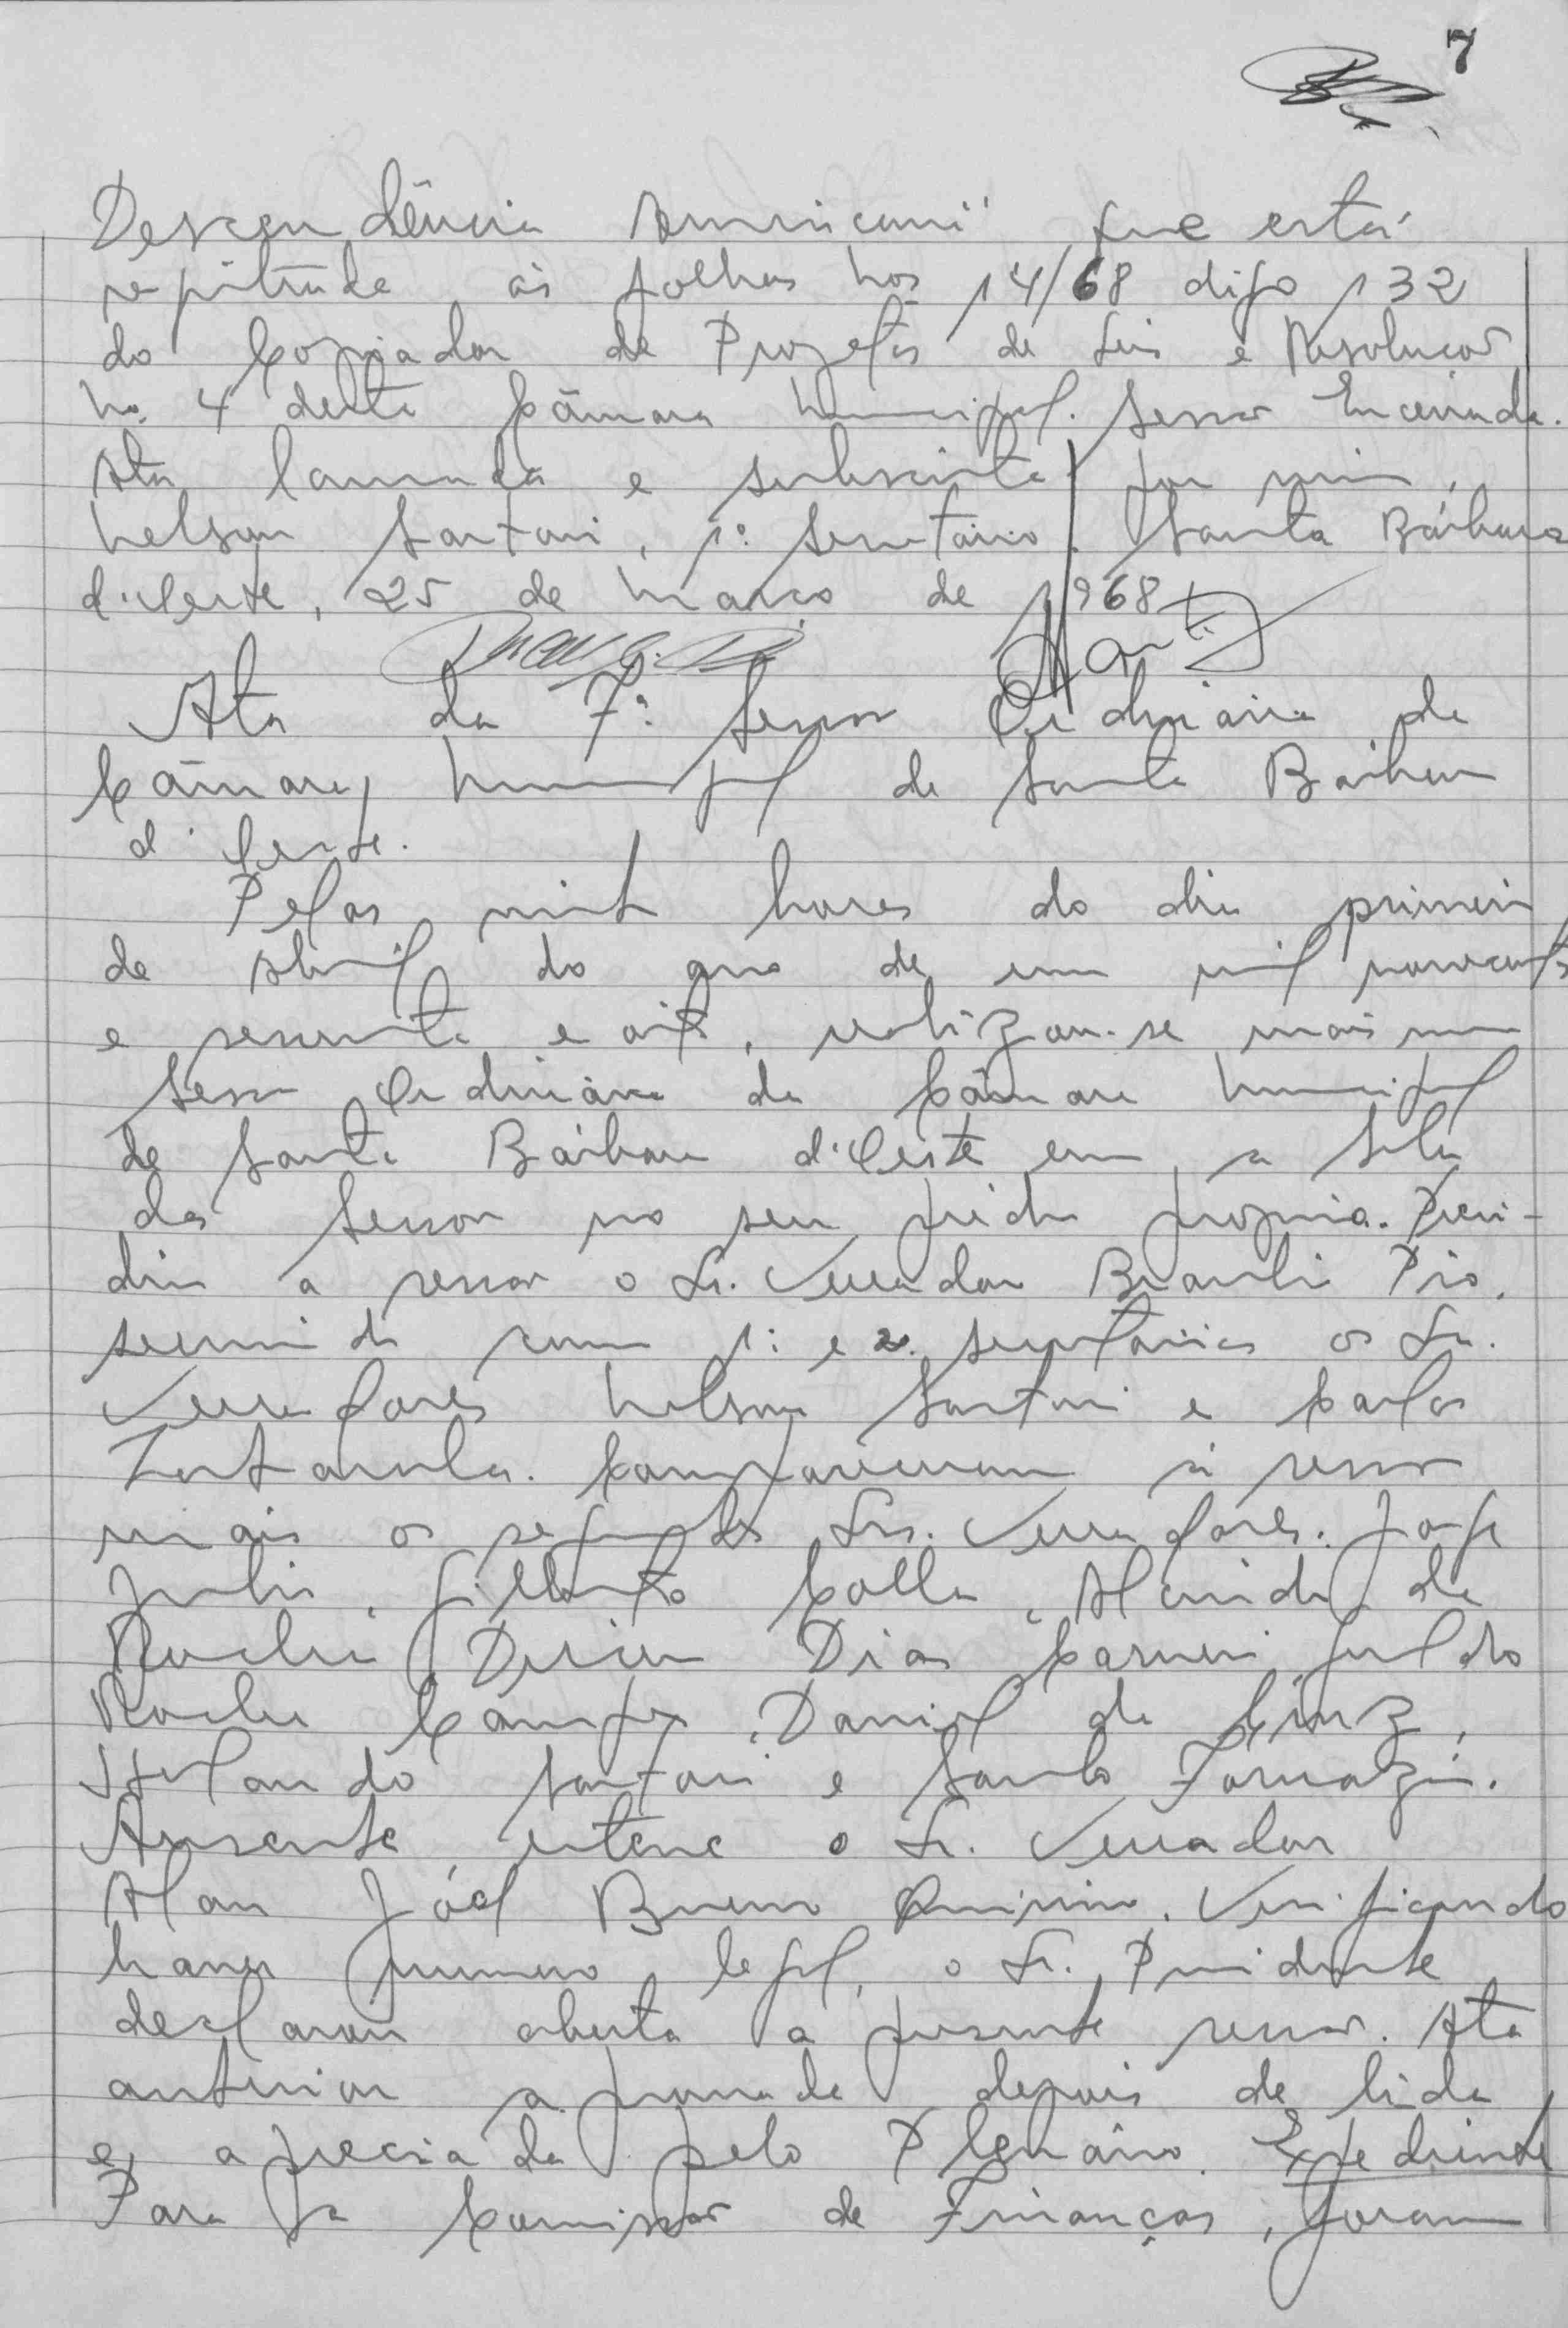 7
Descendência Americana" que está
registrada às folhas nos 14/68 digo 132
do Copiador de Projetos de Leis e Resoluções
no. 4 desta Câmara Municipal. Sessão Encerrada.
Ata lavrada e subscrita por mim,
Nelson Sartori, 1º Secretário. Santa Bárbara
d'Oeste, 25 de Março de 1968
Ata da 7ª Sessão Ordinária da
Câmara Municipal de Santa Bárbara
d'Oeste.
Pelas vinte horas do dia primeiro
de Abril do ano de um mil novecentos
e sessenta e oito, realizou-se mais uma
Sessão Ordinária da Câmara Municipal
de Santa Bárbara d'Oeste em a Sala
das Sessões no seu prédio próprio. Presi-
diu a sessão o Sr. Vereador Braulio Pio,
servindo como 1º e 2º Secretários os Srs.
Vereadores Nelson Sartori e Carlos
Compareceram à sessão
mais os seguintes Srs. Vereadores: Jorge
Julio, Gilberto Colla, Alcindo da
Rocha, Dirceu Dias Carneiro, Geraldo
Rocha Campos, Daniel da Cruz,
Orlando Sartori e Santo Fornazin.
Ausente esteve o Sr. Vereador
Alan Jóel Bueno Quirino. Verificando
haver número legal, o Sr. Presidente
declarou aberta a presente sessão. Ata
anterior aprovada depois de lida
e apreciada pelo Plenário. Expediente
Para a Comissão de Finanças, foram